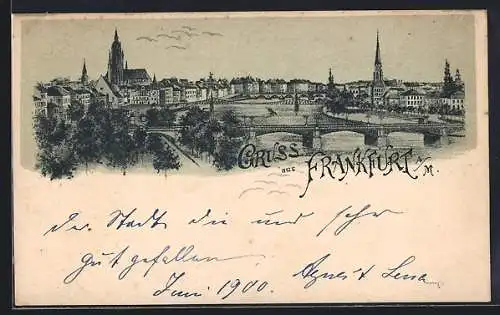 GRUSS aus FRANKFURT a/M.
der Stadt die und sehr
gut gefallen
Juni 1900. Agnes & Lena